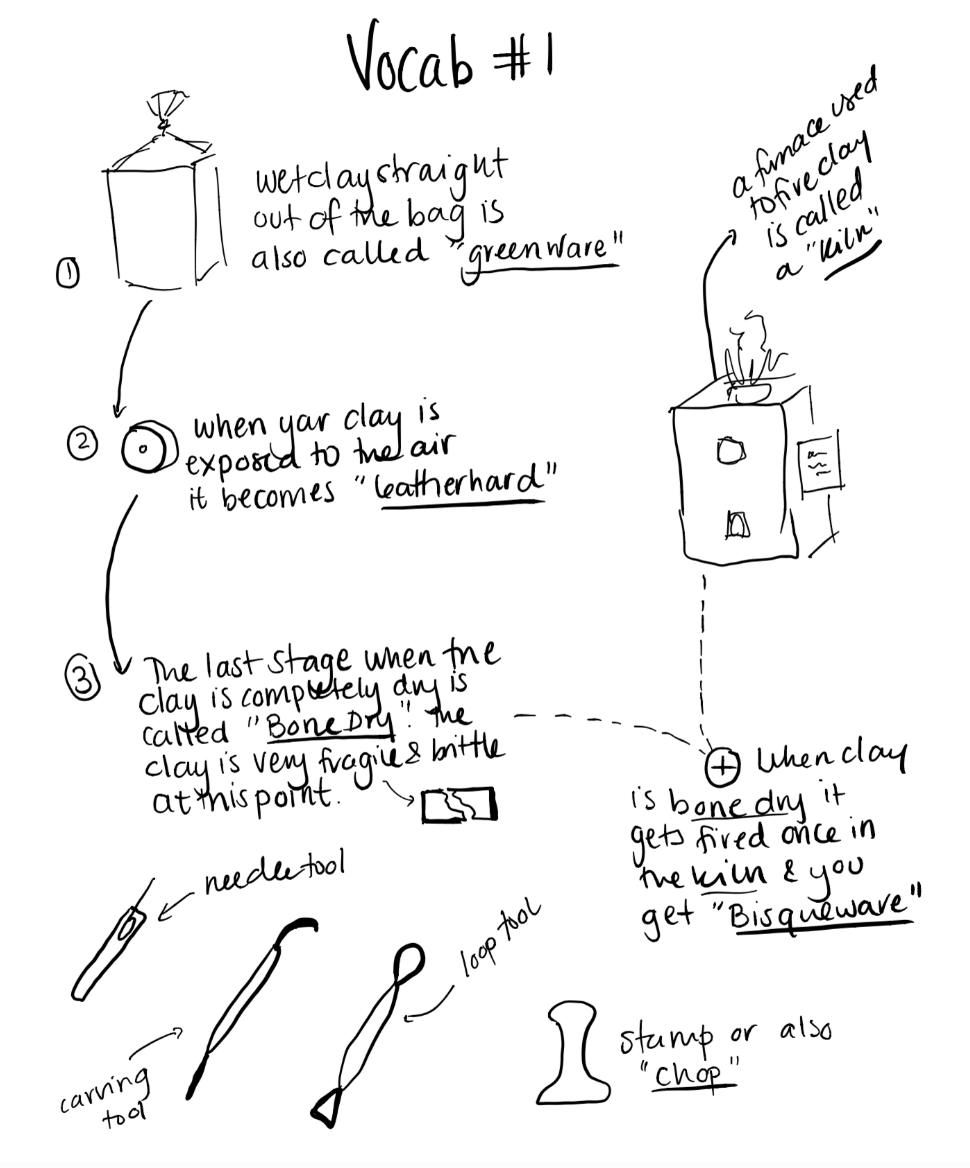 Vocab #1
wet clay straight
out of the bag is
also called "greenware"
①
a furnace used
to fire clay
is called
a "kiln"
②
when your clay is
exposed to the air
it becomes "leatherhard"
③
The last stage when the
clay is completely dry is
called "Bone Dry". The
clay is very fragile & brittle
at this point.
+ When clay
is bone dry it
gets fired once in
the kiln & you
get "Bisqueware"
needle tool
loop tool
carving
tool
stamp or also
"chop"